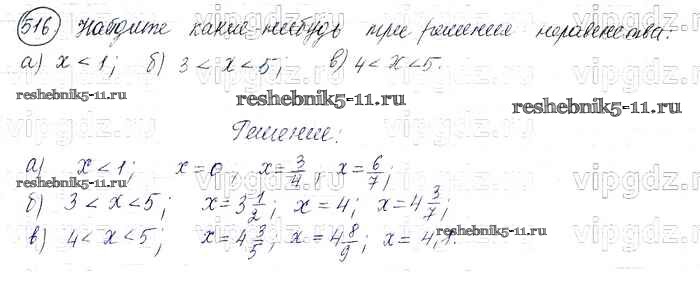 516) Найдите какие-нибудь три решения неравенства:
а) x < 1; б) 3 < x < 5; в) 4 < x < 5.
reshebnik5-11.ru reshebnik5-11.ru reshebnik5-11.ru
Решение:
а) x < 1; x = 0; x = 3/4; x = 6/7;
reshebnik5-11.ru reshebnik5-11.ru
б) 3 < x < 5; x = 3 1/2; x = 4; x = 4 3/7;
в) 4 < x < 5; x = 4 3/5; x = 4 8/9; x = 4,1.
reshebnik5-11.ru
vipgdz.ru vipgdz.ru vipgdz.ru